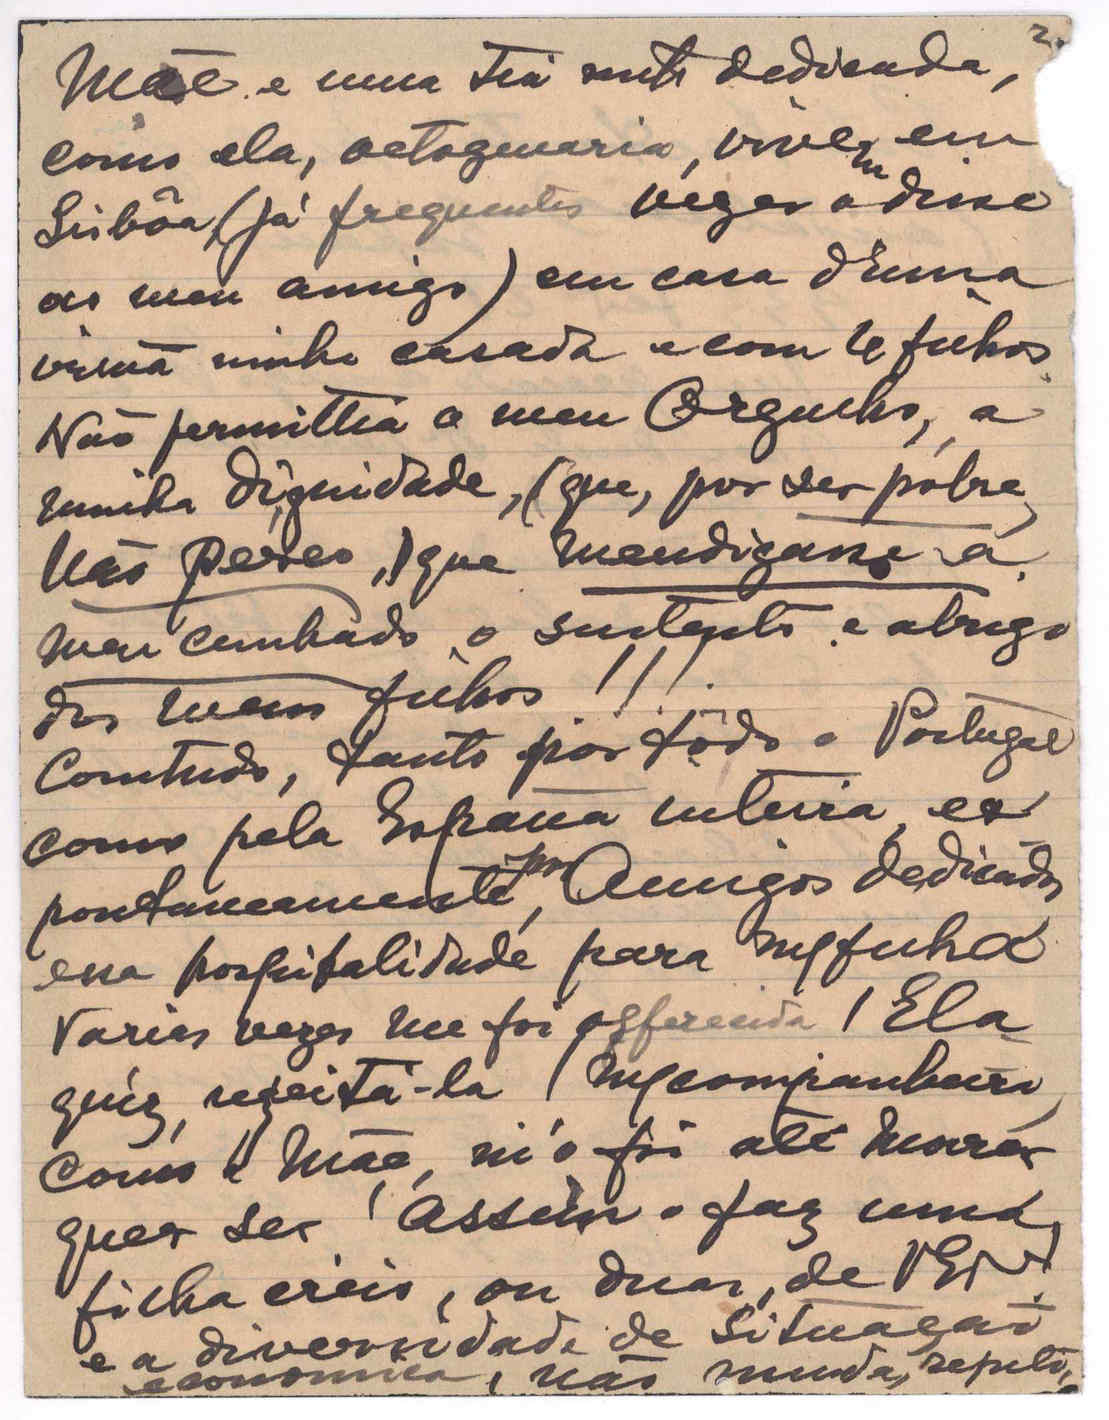 2.
Mãe e uma tia mto dedicada,
como ela, octogenaria, vivem em
Lisbôa, (já frequentes vezes o disse
ao meu amigo) em casa d'uma
irmã minha casada e com 4 filhos.
Não permittia o meu Orgulho, a
minha dignidade, (que, por ser pobre,
não perco,) que mendigasse a
meu cunhado o sustento e abrigo
dos meus filhos!!!
Comtudo, tanto por todo o Portugal
como pela España inteira, es
pontaneamente, por Amigos dedicados
essa hospitalidade para filha
Varias vezes me foi offerecida! Ela
quiz, regeitá-la! companheira,
como a Mãe, m'o foi até morrer
quer ser! Assim o faz uma
filha creio, ou duas, de
e a diversidade de situação
economica, não muda, repito,